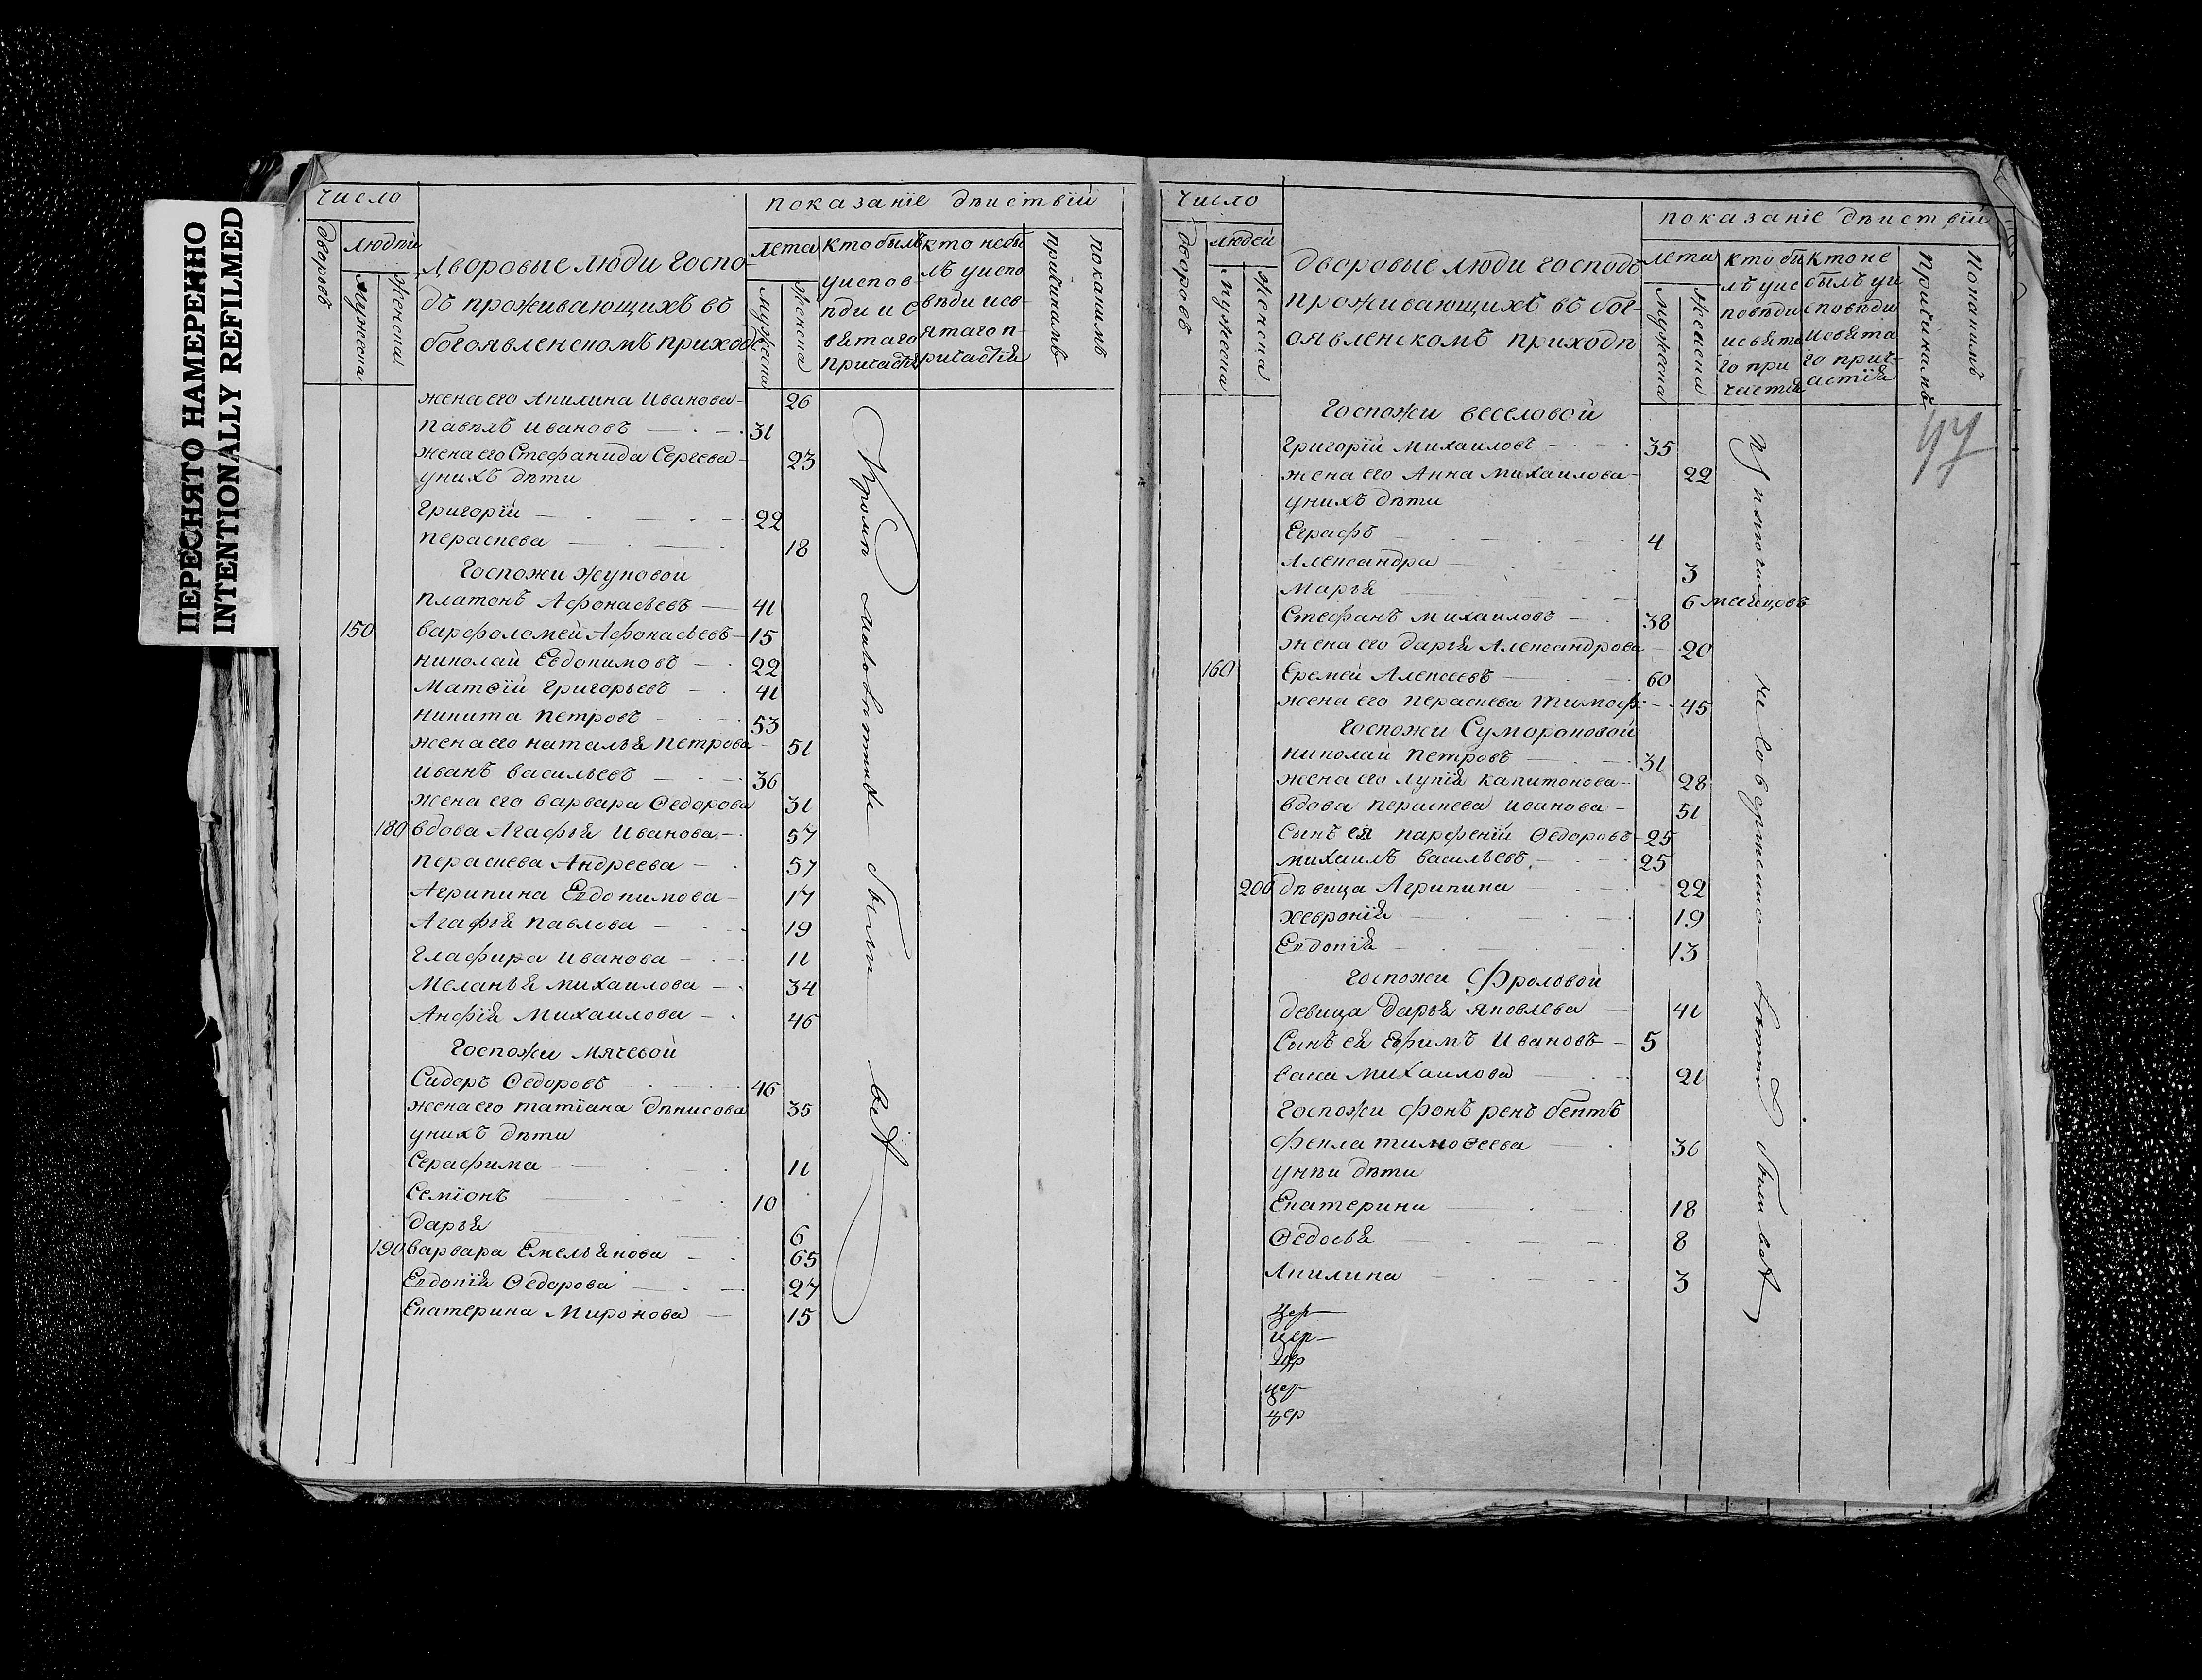 ПЕРЕСНЯТО НАМЕРЕННО
INTENTIONALLY REFILMED
число
показаніе дѣиствїй
дворовъ
людѣй
мужеска
женска
Дворовые люди госпо-
дъ проживающихъ въ
богоявленскомъ приходѣ
лета
мужеска
женска
кто былъ
уиспов-
ѣди и с
вѣтаго
Причастїя
кто небы
лъ уиспо
вѣди исв-
ятаго п-
ричастїя
причинамъ
покакимъ
жена его Акилина Иванова 26
павелъ ивановъ 31
жена его Стефанида Сергева 23
унихъ дѣти
григорїй 22
пераскева 18
Госпожи жуковой
платонъ Афонасьевъ 41
150 варфоломей Афонасьевъ 15
николай Евдокимовъ 22
Матѳїй григорьевъ 41
никита петровъ 53
жена его наталья петрова 51
иванъ васильевъ 36
жена его варвара Ѳедорова 31
180 вдова Агафья Иванова 57
пераскева Андреева 57
Агрипина Евдокимова 17
Агафья павлова 19
глафира иванова 11
Меланья михаилова 34
Анфїя Михаилова 46
Госпожи мячевой
Сидоръ Ѳедоровъ 46
жена его татїана дѣнисова 35
унихъ дѣти
Серафима 11
Семїонъ 10
дарья 6
190 варвара Емельянова 65
Евдокїя Ѳедорова 27
Екатерина Миронова 15
Кромѣ малолѣтных были всѣ
число
показаніе дѣиствїй
дворовъ
людей
мужеска
женска
дворовые люди господъ
проживающихъ въ бог-
оявленскомъ приходѣ
лета
мужеска
женска
кто бы
лъ уис
повѣди
исвята
го при
частїя
кто не
былъ уи
сповѣди
исвята
го прич-
астїя
причинамъ
Покакимъ
47
Госпожи веселовой
григорїй Михаиловъ 35
жена его Анна михаилова 22
унихъ дѣти
Еграфъ 4
Александра 3
Марья 6 месяцовъ
Стефанъ михаиловъ 38
жена его дарья Александрова 20
160 Еремей Алексеевъ 60
жена его пераскева тимоф: 45
Госпожи Сумороковой
николай петровъ 31
жена его лукїя капитонова 28
вдова пераскева иванова 51
Сынъ ея парфенїй Ѳедоровъ 25
михаилъ васильевъ 25
200 дѣвица Агрипина 22
хеvронїя 19
Евдокїя 13
госпожи Фроловой
девица Дарья яковлева 41
Сынъ ея Ефимъ Ивановъ 5
Саша михаилова 21
Госпожи фонъ ренъ бептъ
фекла тимоѳеева 36
унѣи дѣти
Екатерина 18
Ѳедосья 8
Акилина 3
цер
цер
цер
цер
цер